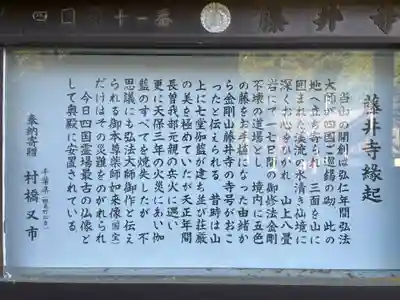 四国第十一番
藤井寺
藤井寺縁起
当山の開創は弘仁年間弘法
大師が四国ご巡錫の砌、此の
地へ立ち寄られ、三面を山に
囲まれた渓流の水清き仙境に
深くお心をひかれ、山上八畳
岩にて一七日間の御修法金剛
不壊の道場とし、境内に五色
の藤をお手植になった由緒か
ら金剛山藤井寺の寺号がおこ
ったと伝えられる。昔時は山
上に七堂伽藍が建ち並び荘厳
の美を極めていたが天正年間
長曽我部元親の兵火に遇い
更に天保三年の火災にあい伽
藍のすべてを焼失したが、不
思議にも弘法大師御作と伝え
られる御本尊薬師如来像(国宝)
だけはその災難をのがれられ
今日四国霊場最古の仏像と
して奥殿に安置されている。
奉納寄贈
千葉県
村橋又市